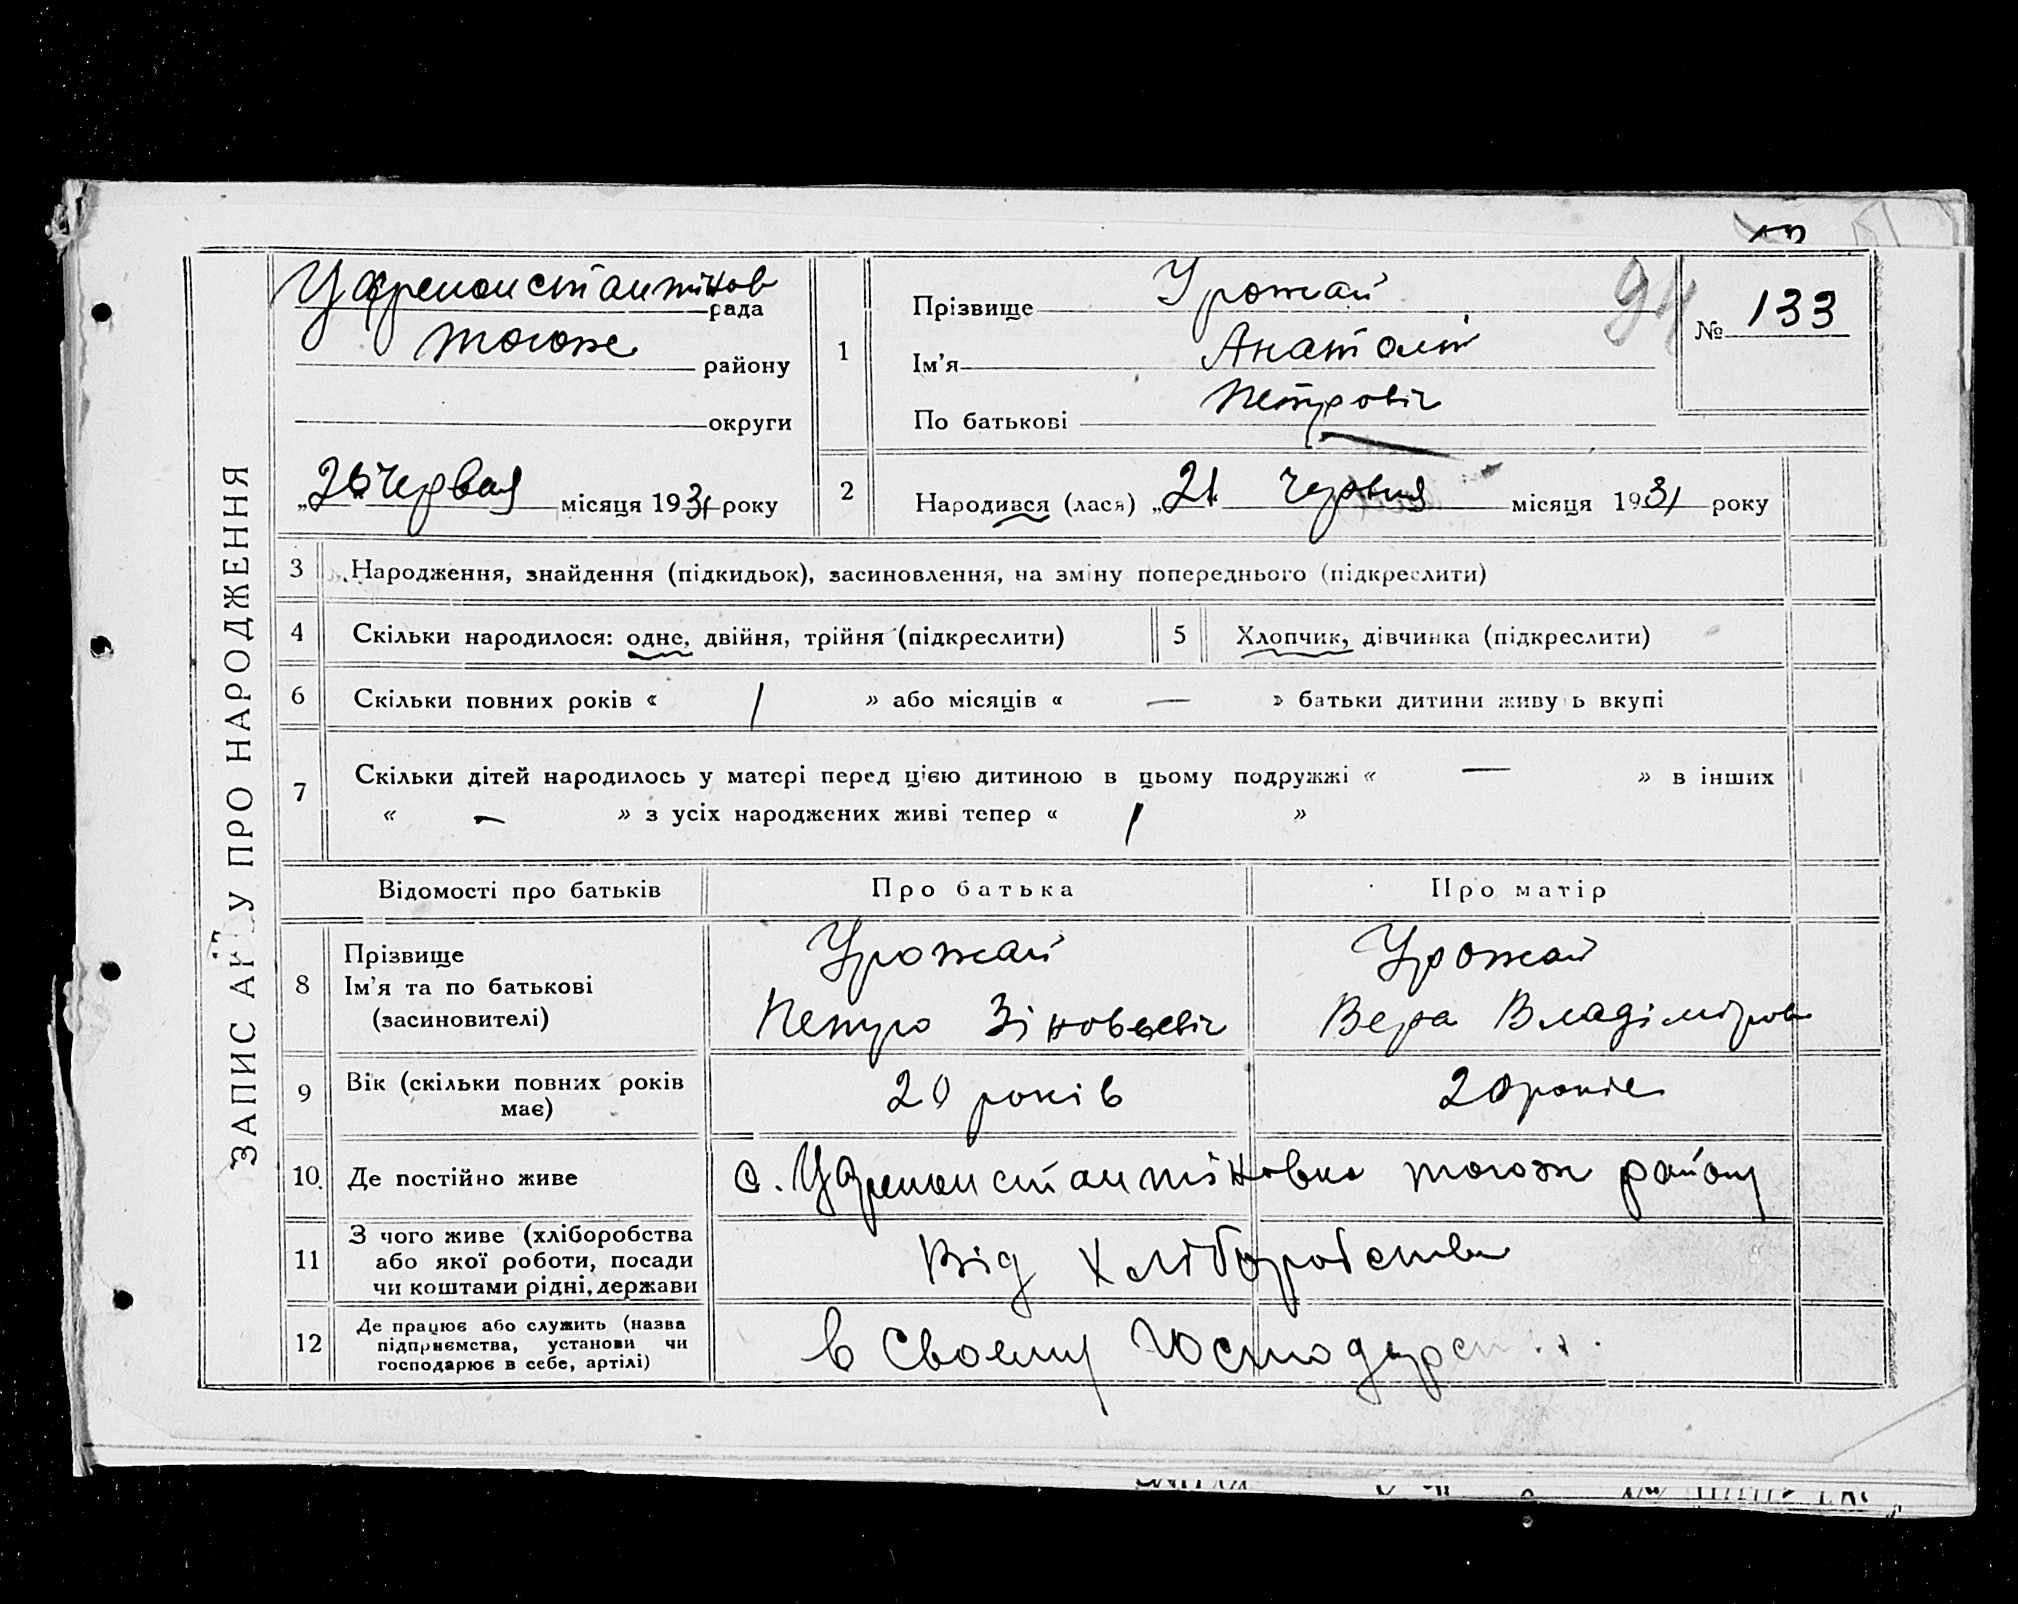 ЗАПИС АКТУ ПРО НАРОДЖЕННЯ
рада
тогож району
округи
„26 червня місяця 1931 року
1
Прізвище Урожай
Ім'я Анатолій
По батькові Петровіч
94
№ 133
2
Народився (лася) „21 червня місяця 1931 року
3 Народження, знайдення (підкидьок), засиновлення, на зміну попереднього (підкреслити)
4 Скільки народилося: одне, двійня, трійня (підкреслити)
5 Хлопчик, дівчинка (підкреслити)
6 Скільки повних років « 1 » або місяців « — » батьки дитини живу ь вкупі
7 Скільки дітей народилось у матері перед цією дитиною в цьому подружжі « — » в інших
« - » з усіх народжених живі тепер « 1 »
Відомості про батьків Про батька Про матір
8 Прізвище
Ім'я та по батькові
(засиновителі)
Урожай
Петро Зіновьевіч
Урожай
Вера Владімфров
9 Вік (скільки повних років
має)
20 років
20 років
10. Де постійно живе
с. тогож району
11 З чого живе (хліборобства
або якої роботи, посади
чи коштами рідні, держави
Від Хліборобства
12 Де працює або служить (назва
підприємства, установи чи
господарює в себе, артілі)
в своему